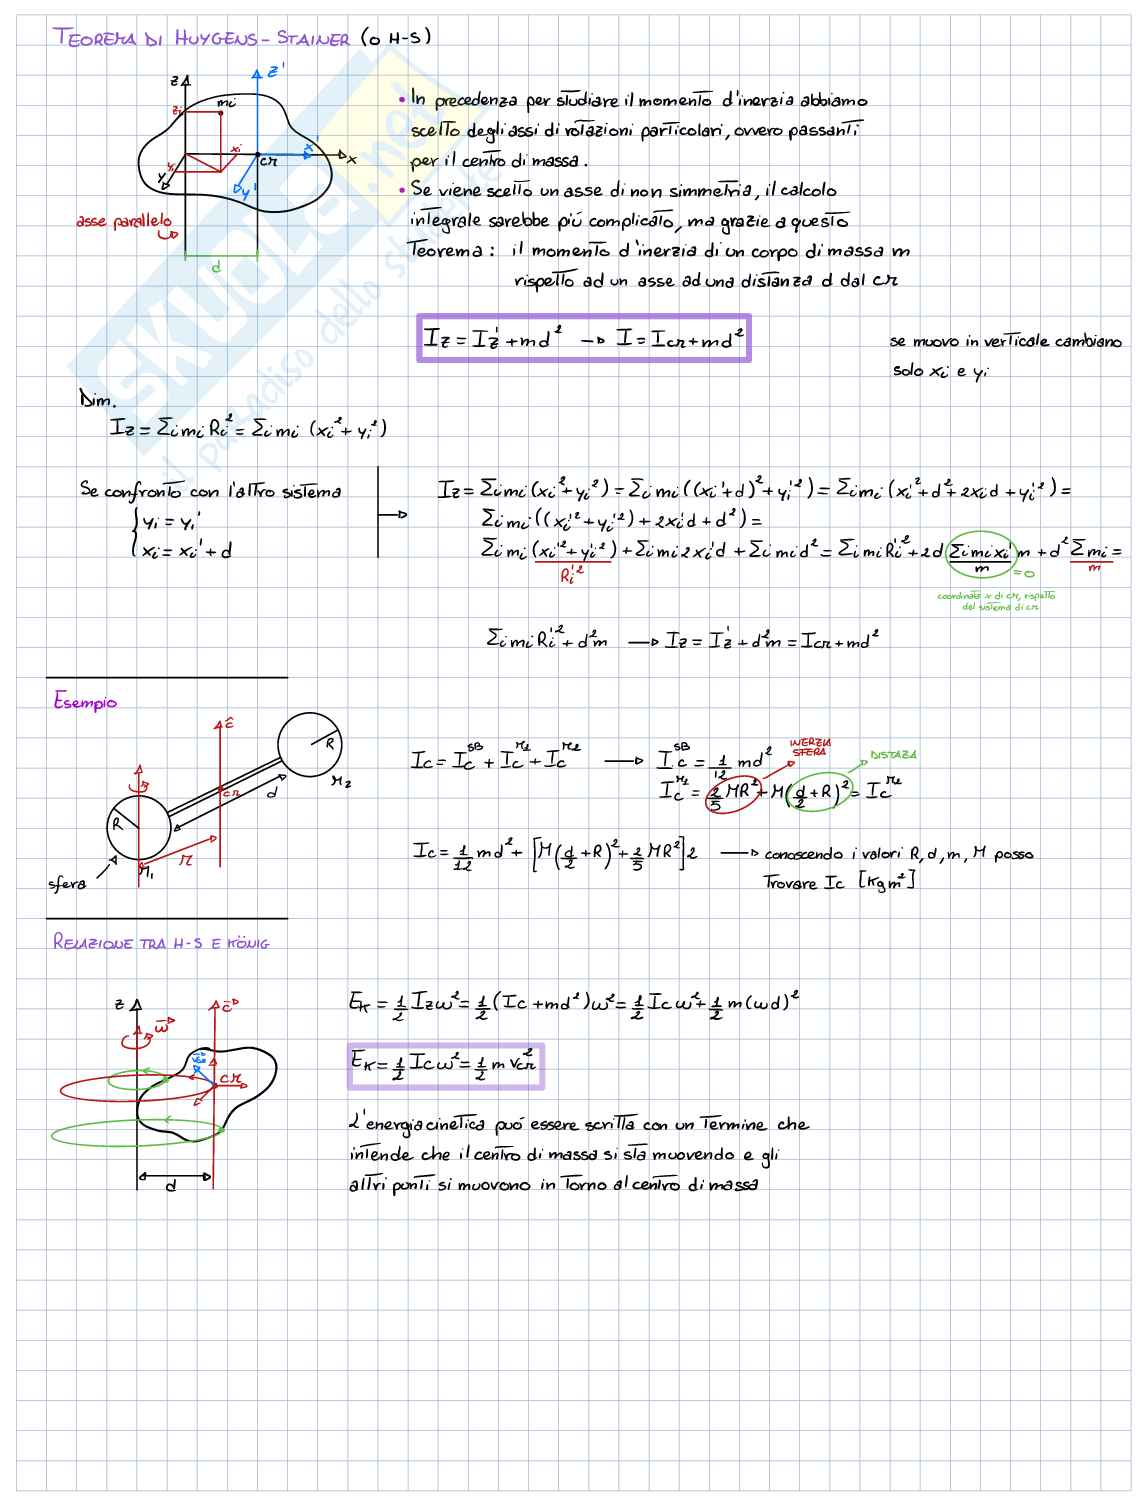 TEOREMA DI HUYGENS-STAINER (O H-S)
z z'
zi mi
xi x' x
yi y CM y'
asse parallelo
d
• In precedenza per studiare il momento d'inerzia abbiamo
scelto degli assi di rotazioni particolari, ovvero passanti
per il centro di massa.
• Se viene scelto un asse di non simmetria, il calcolo
integrale sarebbe piú complicato, ma grazie a questo
Teorema: il momento d'inerzia di un corpo di massa m
rispetto ad un asse ad una distanza d dal CM
Iz = Iz' + md² → I = ICM + md²
se muovo in verticale cambiano
solo xi e yi
Dim.
Iz = Σi mi Ri² = Σi mi (xi² + yi²)
Se confronto con l'altro sistema
{ yi = yi'
xi = xi' + d
Iz = Σi mi (xi² + yi²) = Σi mi ((xi' + d)² + yi'²) = Σi mi (xi'² + d² + 2xi'd + yi'²) =
Σi mi ((xi'² + yi'²) + 2xi'd + d²) =
Σi mi (xi'² + yi'²) + Σi mi 2xi'd + Σi mi d² = Σi mi Ri'² + 2d Σi mi xi' m + d² Σ mi =
Ri'² m = 0 m
coordinata x di CM, rispetto
del sistema di CM
Σi mi Ri'² + d²m → Iz = Iz' + d²m = ICM + md²
Esempio
ĉ
R
M2
CM d
R
r
M1
sfera
Ic = Ic^SB + Ic^M1 + Ic^M2 → Ic^SB = 1/12 md²
INERZIA SFERA
DISTAZA
Ic^M1 = 2/5 MR² + M(d/2 + R)² = Ic^M2
Ic = 1/12 md² + [M(d/2 + R)² + 2/5 MR²]2 → conoscendo i valori R, d, m, M posso
trovare Ic [Kg m²]
RELAZIONE TRA H-S E KÖNIG
z c
ω
CM
d
EK = 1/2 Iz ω² = 1/2 (Ic + md²)ω² = 1/2 Ic ω² + 1/2 m(ωd)²
EK = 1/2 Ic ω² = 1/2 m vCM²
L'energia cinetica puó essere scritta con un termine che
intende che il centro di massa si sta muovendo e gli
altri punti si muovono in torno al centro di massa
SKUOLA.net
il paradiso dello studente